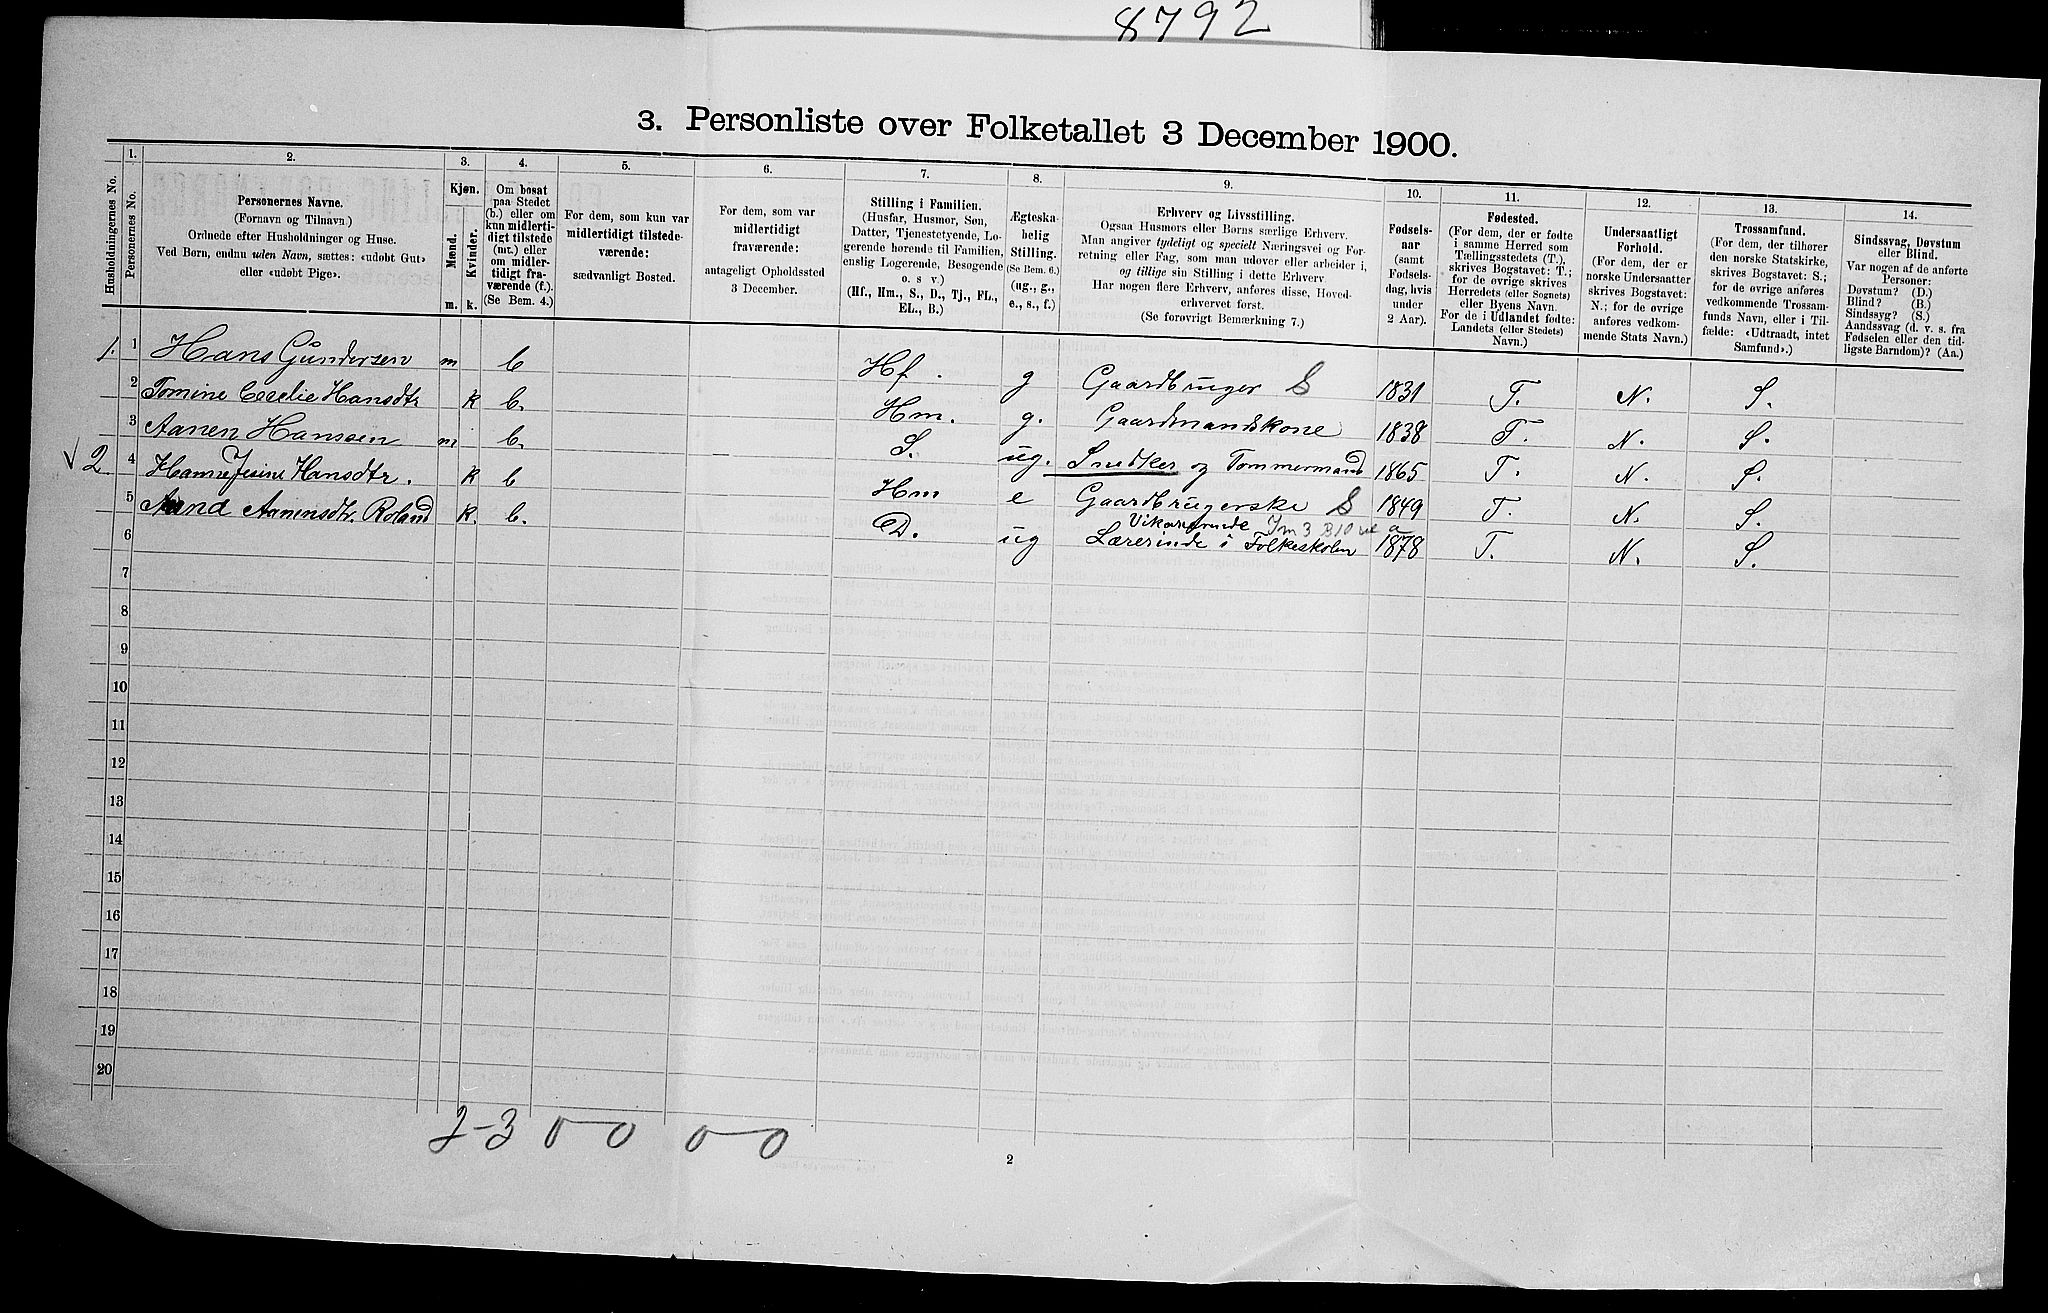 8792
3. Personliste over Folketallet 3 December 1900.
Husholdningernes No.
1. Personernes No.
2. Personernes Navne.
(Fornavn og Tilnavn.)
Ordnede efter Husholdninger og Huse.
Ved Børn, endnu uden Navn, sættes: «udøbt Gut»
eller «udøbt Pige».
3. Kjøn.
Mænd. m.
Kvinder. k.
4. Om bosat
paa Stedet
(b.) eller om
kun midlerti-
digt tilstede
(mt.) eller
om midler-
tidigt fra-
værende (f.).
(Se Bem. 4.)
5. For dem, som kun var
midlertidigt tilstede-
værende:
sædvanligt Bosted.
6. For dem, som var
midlertidigt
fraværende:
antageligt Opholdssted
3 December.
7. Stilling i Familien.
(Husfar, Husmor, Søn,
Datter, Tjenestetyende, Lo-
gerende hørende til Familien,
enslig Logerende, Besøgende
o. s. v.)
(Hf., Hm., S., D., Tj., FL.,
EL., B.)
8. Ægteska-
belig
Stilling.
(Se Bem. 6.)
(ug., g.,
e., s., f.)
9. Erhverv og Livsstilling.
Ogsaa Husmors eller Børns særlige Erhverv.
Man angiver tydeligt og specielt Næringsvei og For-
retning eller Fag, som man udøver eller arbeider i,
og tillige sin Stilling i dette Erhverv.
Har nogen flere Erhverv, anføres disse, Hoved-
erhvervet først.
(Se forøvrigt Bemærkning 7.)
10. Fødsels-
aar
(samt
Fødsels-
dag, hvis
under
2 Aar).
11. Fødested.
(For dem, der er fødte
i samme Herred som
Tællingsstedets (T.),
skrives Bogstavet: T.;
for de øvrige skrives
Herredets (eller Sognets)
eller Byens Navn.
For de i Udlandet fødte:
Landets (eller Stedets)
Navn.)
12. Undersaatligt
Forhold.
(For dem, der er
norske Undersaatter
skrives Bogstavet:
N.; for de øvrige
anføres vedkom-
mende Stats Navn.)
13. Trossamfund.
(For dem, der tilhører
den norske Statskirke,
skrives Bogstavet: S.;
for de øvrige anføres
vedkommende Trossam-
funds Navn, eller i Til-
fælde: «Udtraadt, intet
Samfund».)
14. Sindssvag, Døvstum
eller Blind.
Var nogen af de anførte
Personer:
Døvstum? (D.)
Blind? (B.)
Sindssyg? (S.)
Aandssvag (d. v. s. fra
Fødselen eller den tid-
ligste Barndom)? (Aa.)
1. 1 Hans Gundersen m b Hf. g Gaardbruger S 1831 T. N. S.
2 Tomine Cecelie Hansdtr k b. Hm. g. Gaardmandskone 1838 T. N. S.
3 Aanen Hanssen m b. S. ug. Snedker og Tømmermand 1865 T. N. S.
√ 2 4 Hanne Hansdtr. k b Hm e Gaardbrugerske S 1849 T. N. S.
Vikarierende
5 Aanensdtr. Roland k. b. D. ug Lærerinde i Folkeskolen 1878 T. N. S.
6
7
8
9
10
11
12
13
14
15
16
17
18
19
20
2-3 0 0 0 0
2